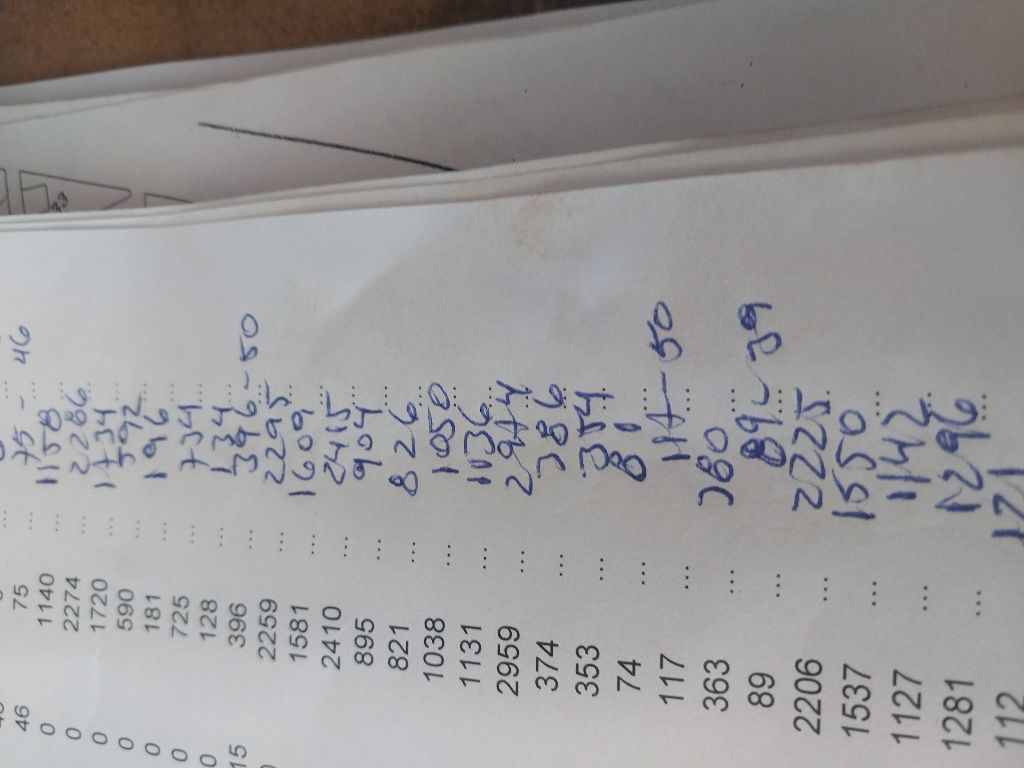 46 75 ... 75 - 46 ...
0 1140 ... 1158 ...
0 2274 ... 2286 ...
0 1720 ... 1734 ...
0 590 ... 592 ...
0 181 ... 196 ...
0 725 ... 734 ...
0 128 ... 134 ...
15 396 ... 396 - 50 ...
2259 ... 2295 ...
1581 ... 1609 ...
2410 ... 2415 ...
895 ... 904 ...
821 ... 826 ...
1038 ... 1050 ...
1131 ... 1136 ...
2959 ... 2974 ...
374 ... 386 ...
353 ... 354 ...
74 ... 81 ...
117 ... 117 - 50 ...
363 ... 380 ...
89 ... 89 - 39 ...
2206 ... 2225 ...
1537 ... 1550 ...
1127 ... 1142 ...
1281 ... 1296 ...
112 121